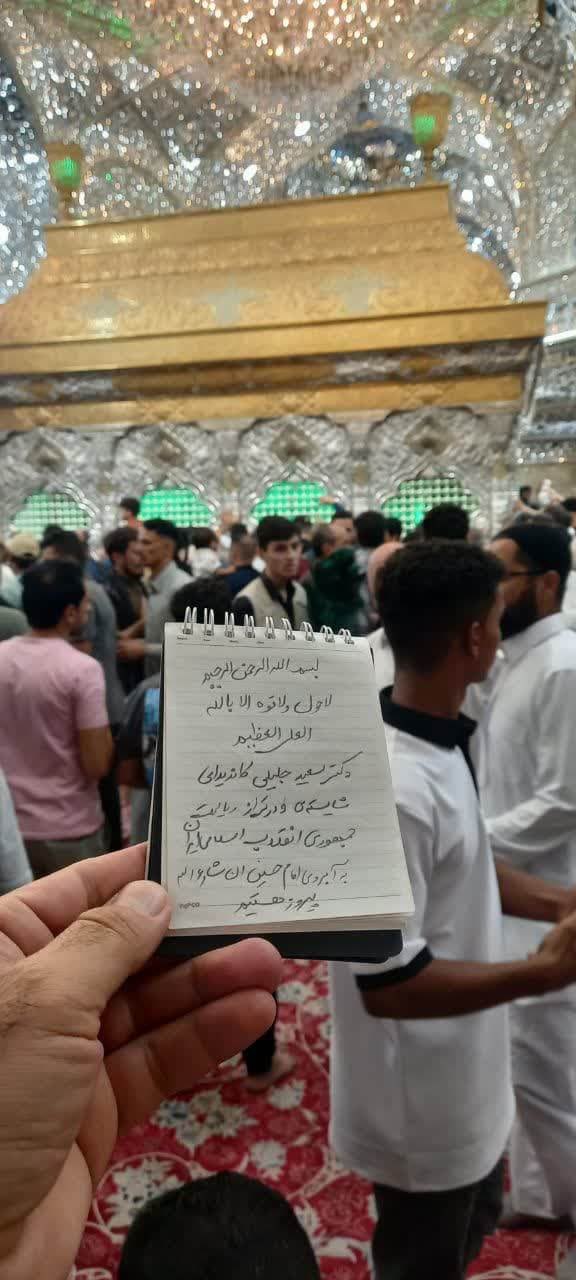 بسم الله الرحمن الرحیم
لاحول ولاقوه الا بالله
العلی العظیم
دکتر سعید جلیلی کاندیدای
شایسته‌ی ریاست
جمهوری انقلاب اسلامی ایران
به آبروی امام حسین ان شاء الله
پیروز هستیم